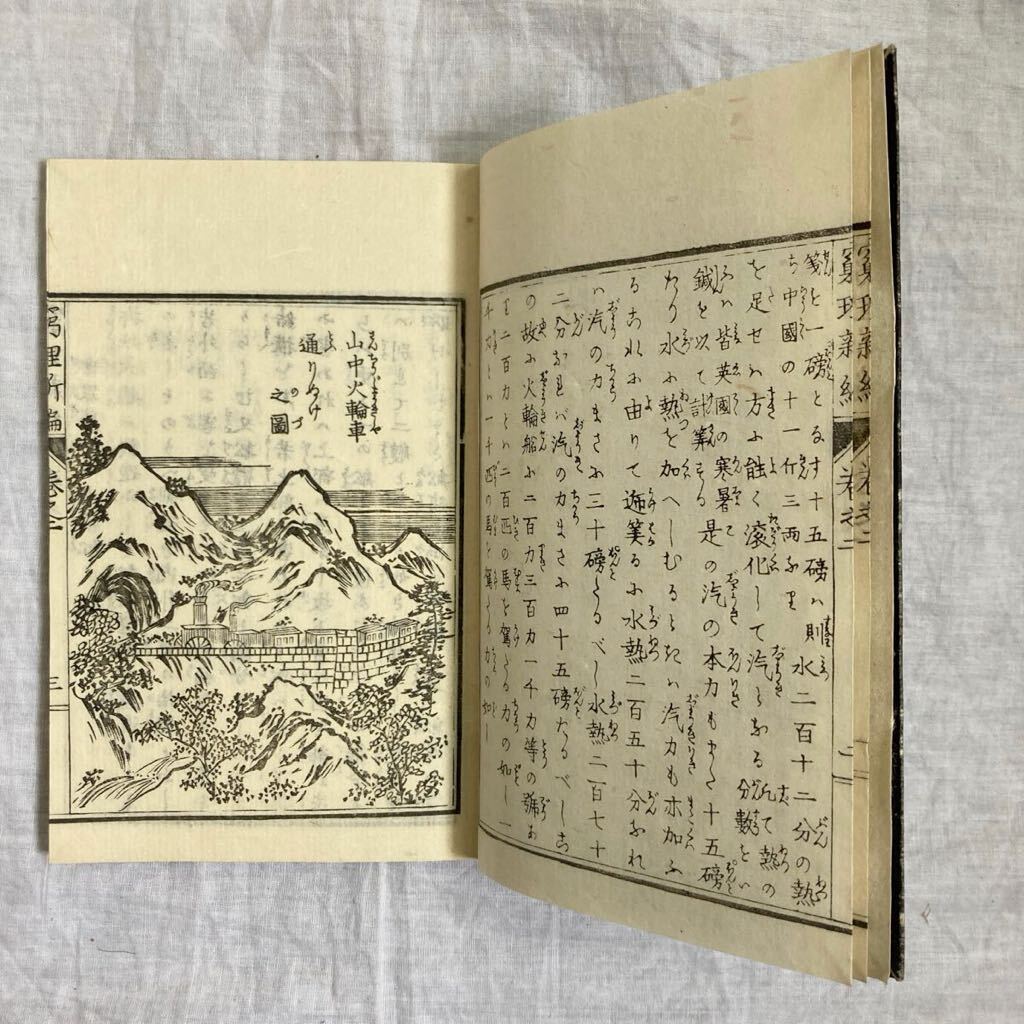 窮理新編 巻之二 二
窮理新編 巻之二 二
箋を一磅となす十五磅ハ則
ち中國の十一斤三両なり
水二百十二分の熱
を足せハ方ふ能く滚化して汽となる
凡て熱の
分數をい
ふハ皆英國の寒暑
鍼を以て計算する
是の汽の本力もまた十五磅
なり水ふ熱を加へしむるときハ汽力も亦加ふ
るこれふ由りて遞筭るふ水熱二百五十分なれ
ハ汽の力まさふ三十磅なるべし水熱二百七十
二分なれバ汽の力まさふ四十五磅なるべしこ
の故ふ火輪船ふ二百力三百力一千力等の號あ
り二百力とハ二百匹の馬を駕たる力の如し一
千力とハ一千匹の馬を駕たる力の如し
山中火輪車
通りぬけ
之圖
窮理新編 巻之二 三